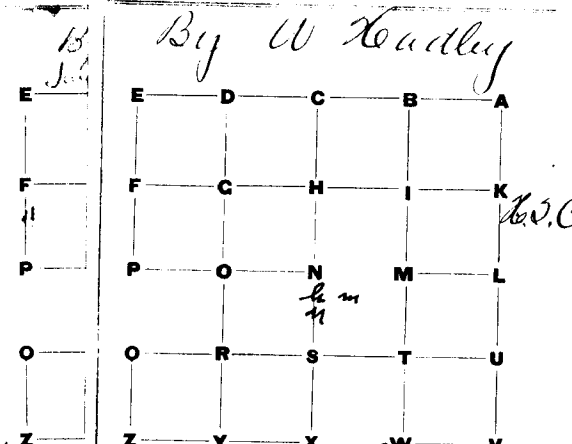 B By W
E E D C B A
F F G H I K
H.S.C
P P O N M L
h m
n
Q Q R S T U
Z Z Y X W V